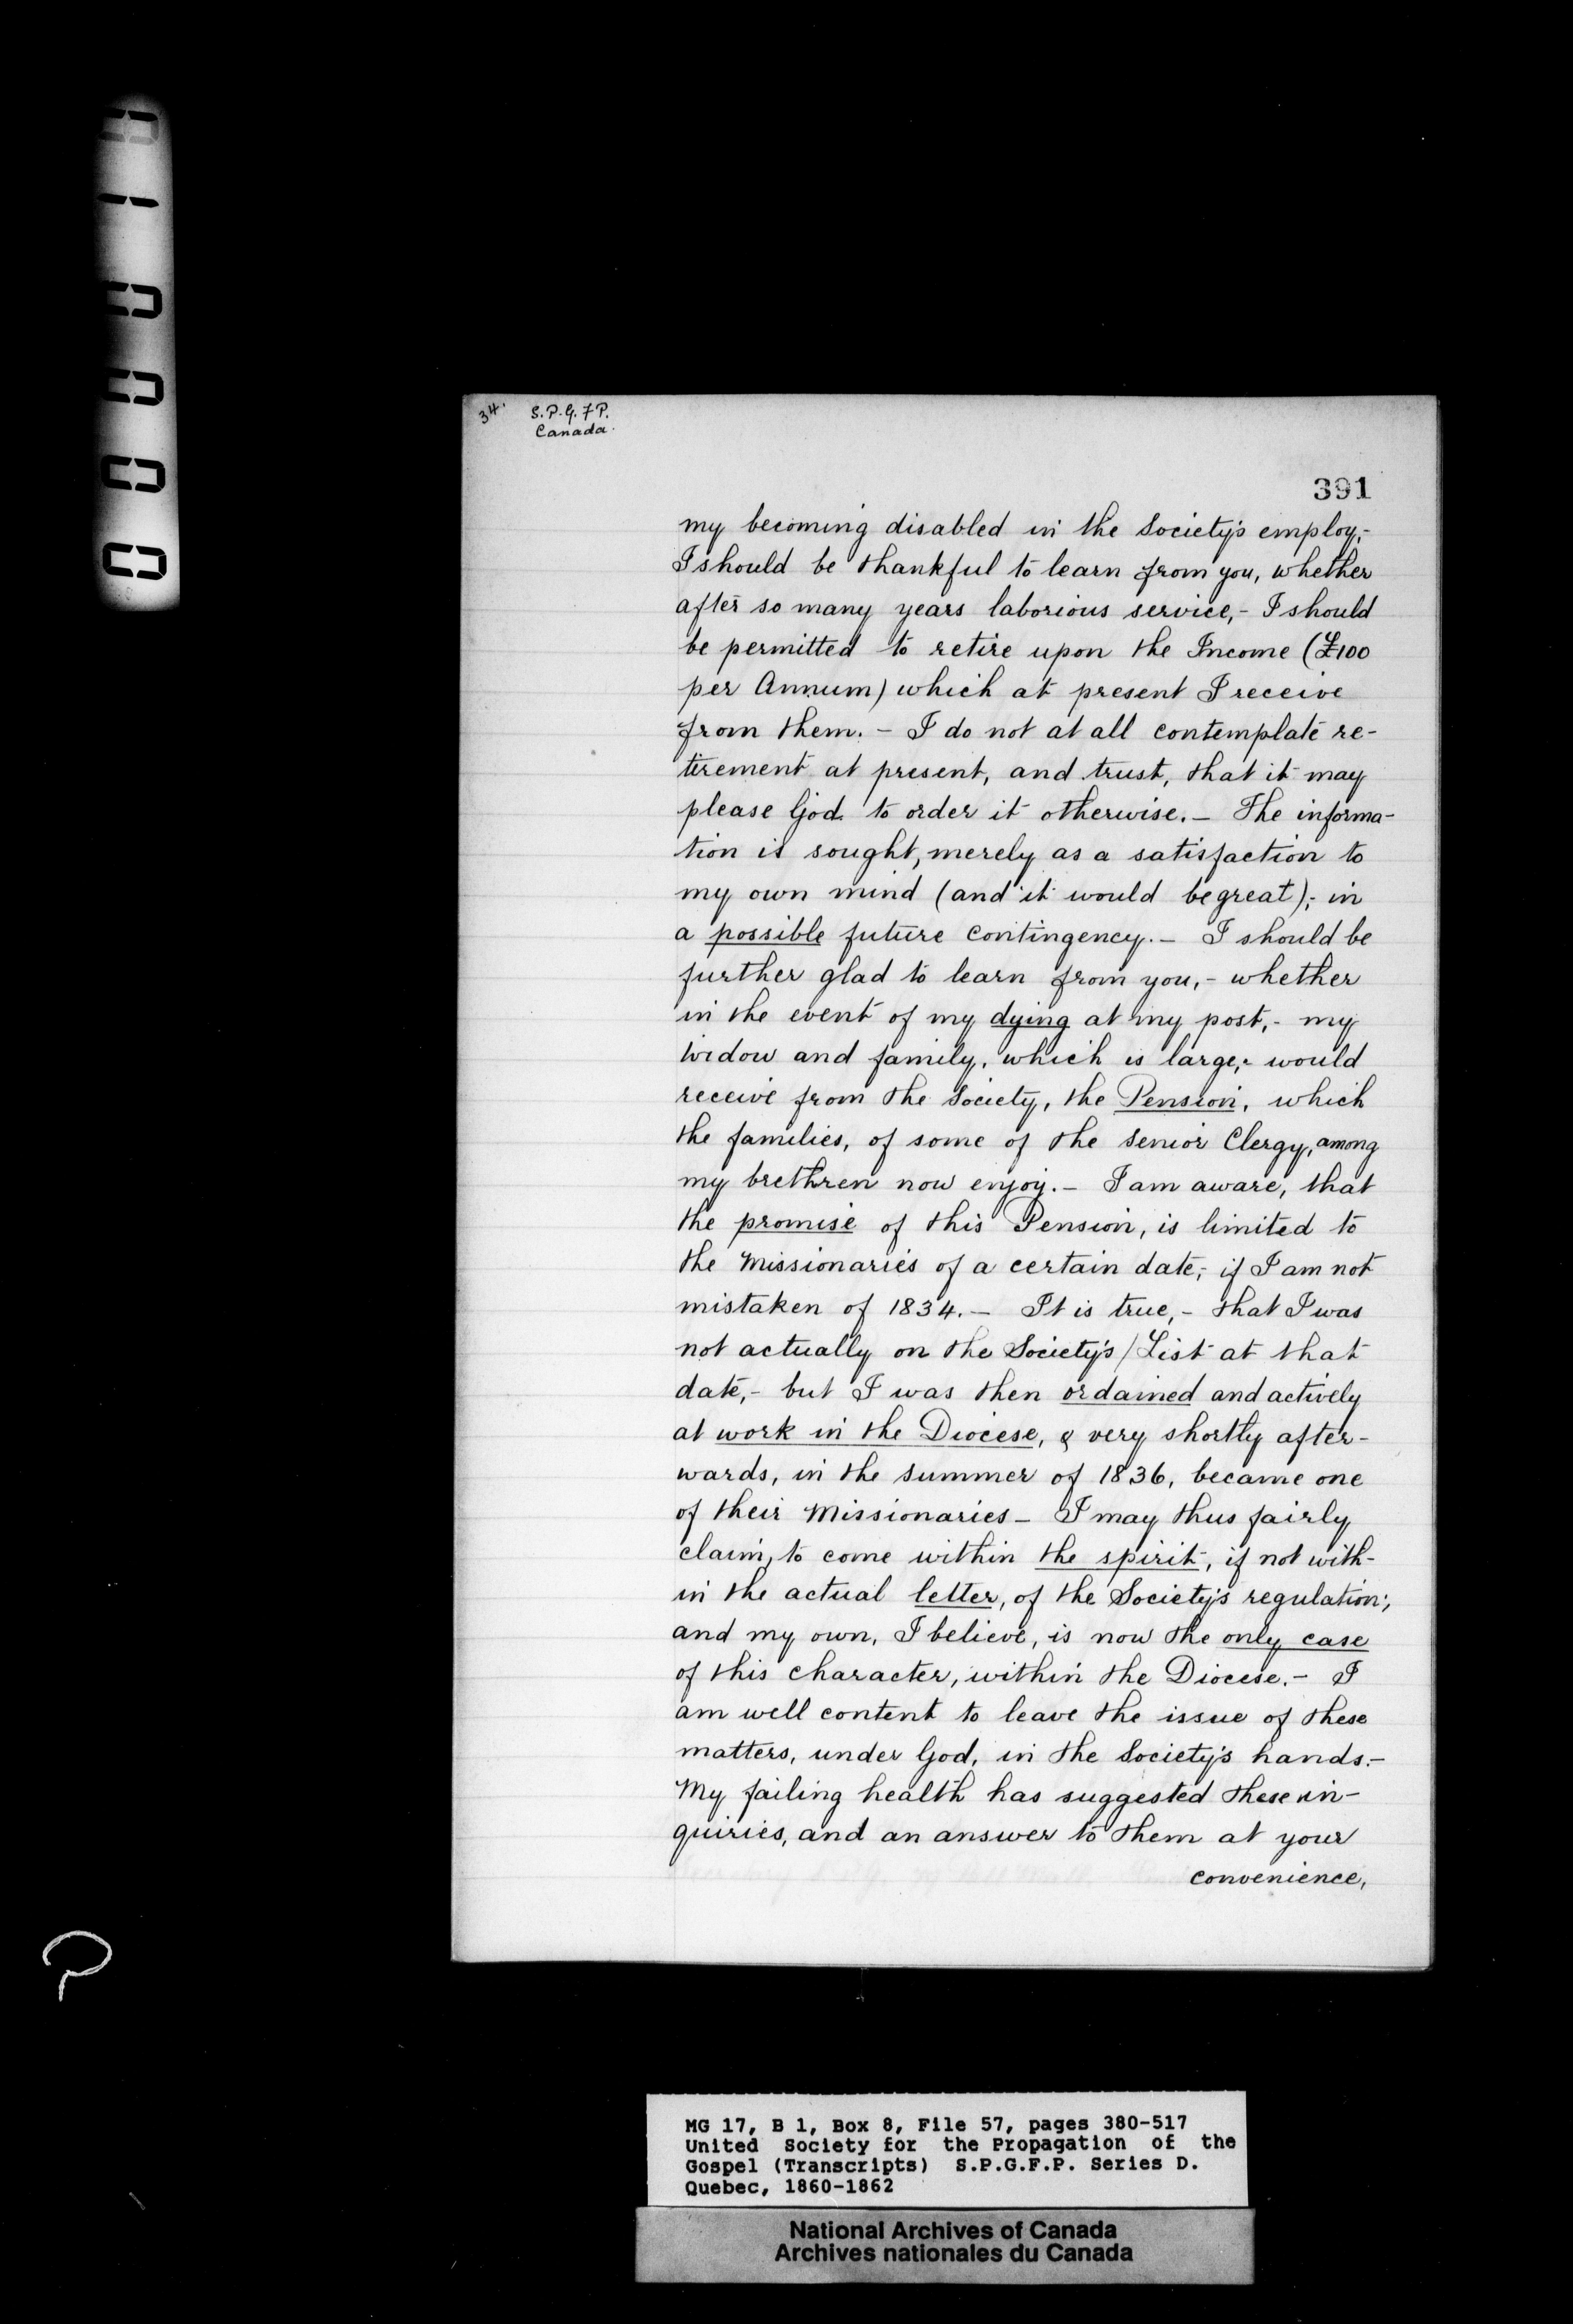 34. S.P.G.F.P.
Canada.
391
my becoming disabled in the Society's employ,-
I should be thankful to learn from you, whether
after so many years laborious service,- I should
be permitted to retire upon the Income (£100
per Annum) which at present I receive
from them. - I do not at all contemplate re-
tirement at present, and trust, that it may
please God to order it otherwise. - The informa-
tion is sought, merely as a satisfaction to
my own mind (and it would be great);- in
a possible future contingency. - I should be
further glad to learn from you,- whether
in the event of my dying at my post,- my
widow and family, which is large,- would
receive from the Society, the Pension, which
the families, of some of the Senior Clergy, among
my brethren now enjoy. - I am aware, that
the promise of this Pension, is limited to
the Missionaries of a certain date,- if I am not
mistaken of 1834. - It is true,- that I was
not actually on the Society's List at that
date,- but I was then ordained and actively
at work in the Diocese, & very shortly after-
wards, in the summer of 1836, became one
of their Missionaries - I may thus fairly
claim, to come within the spirit, if not with-
in the actual letter, of the Society's regulation;
and my own, I believe, is now the only case
of this character, within the Diocese. - I
am well content to leave the issue of these
matters, under God, in the Society's hands. -
My failing health has suggested these in-
quiries, and an answer to them at your
convenience,
MG 17, B 1, Box 8, File 57, pages 380-517
United Society for the Propagation of the
Gospel (Transcripts) S.P.G.F.P. Series D.
Quebec, 1860-1862
National Archives of Canada
Archives nationales du Canada